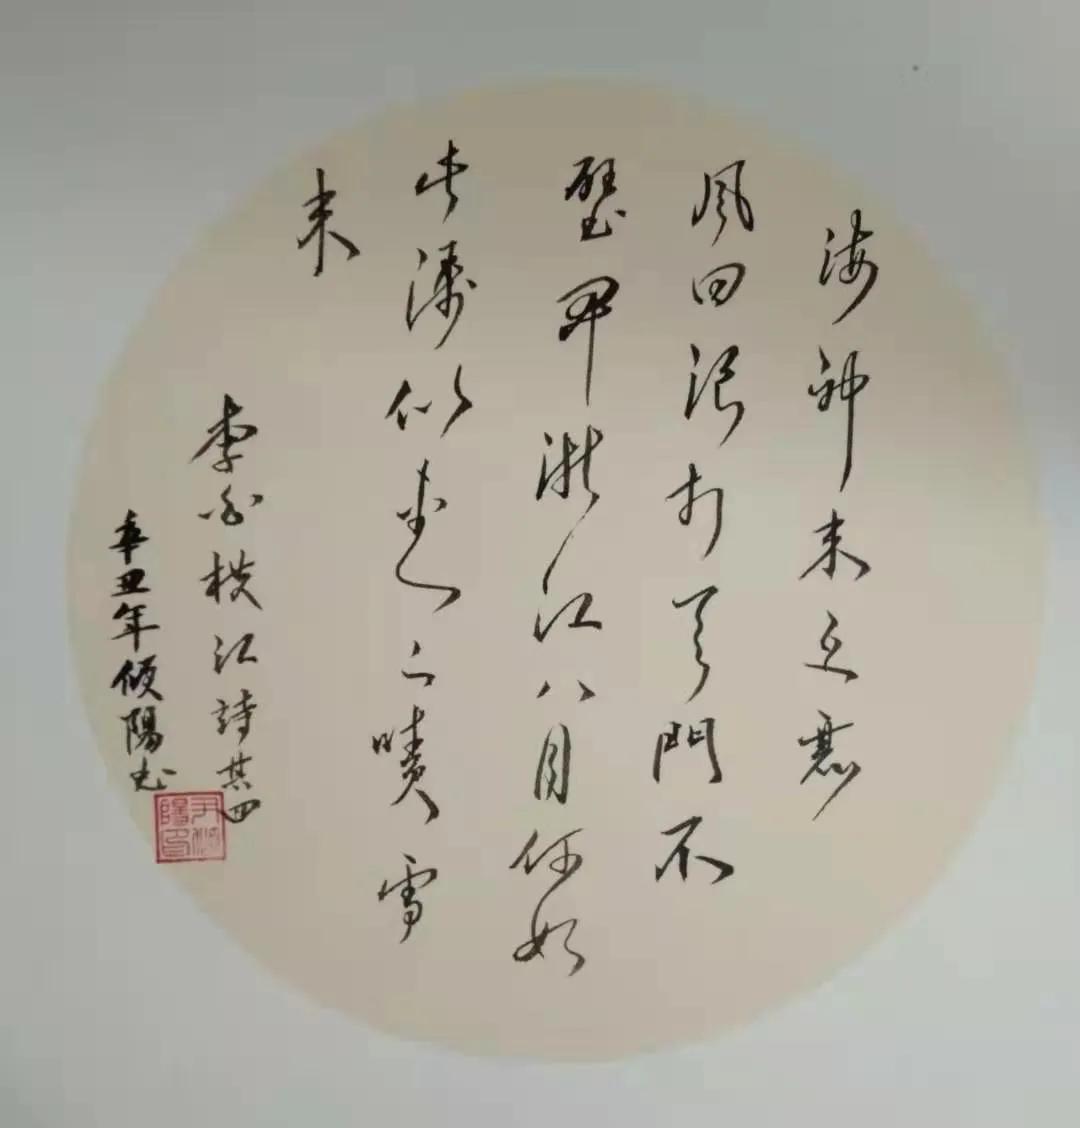 海神来过恶
风回浪打天門石
壁開浙江八月何如
此涛似連山噴雪
来
李白横江詩其四
辛丑年倾陽书
尹倾陽印